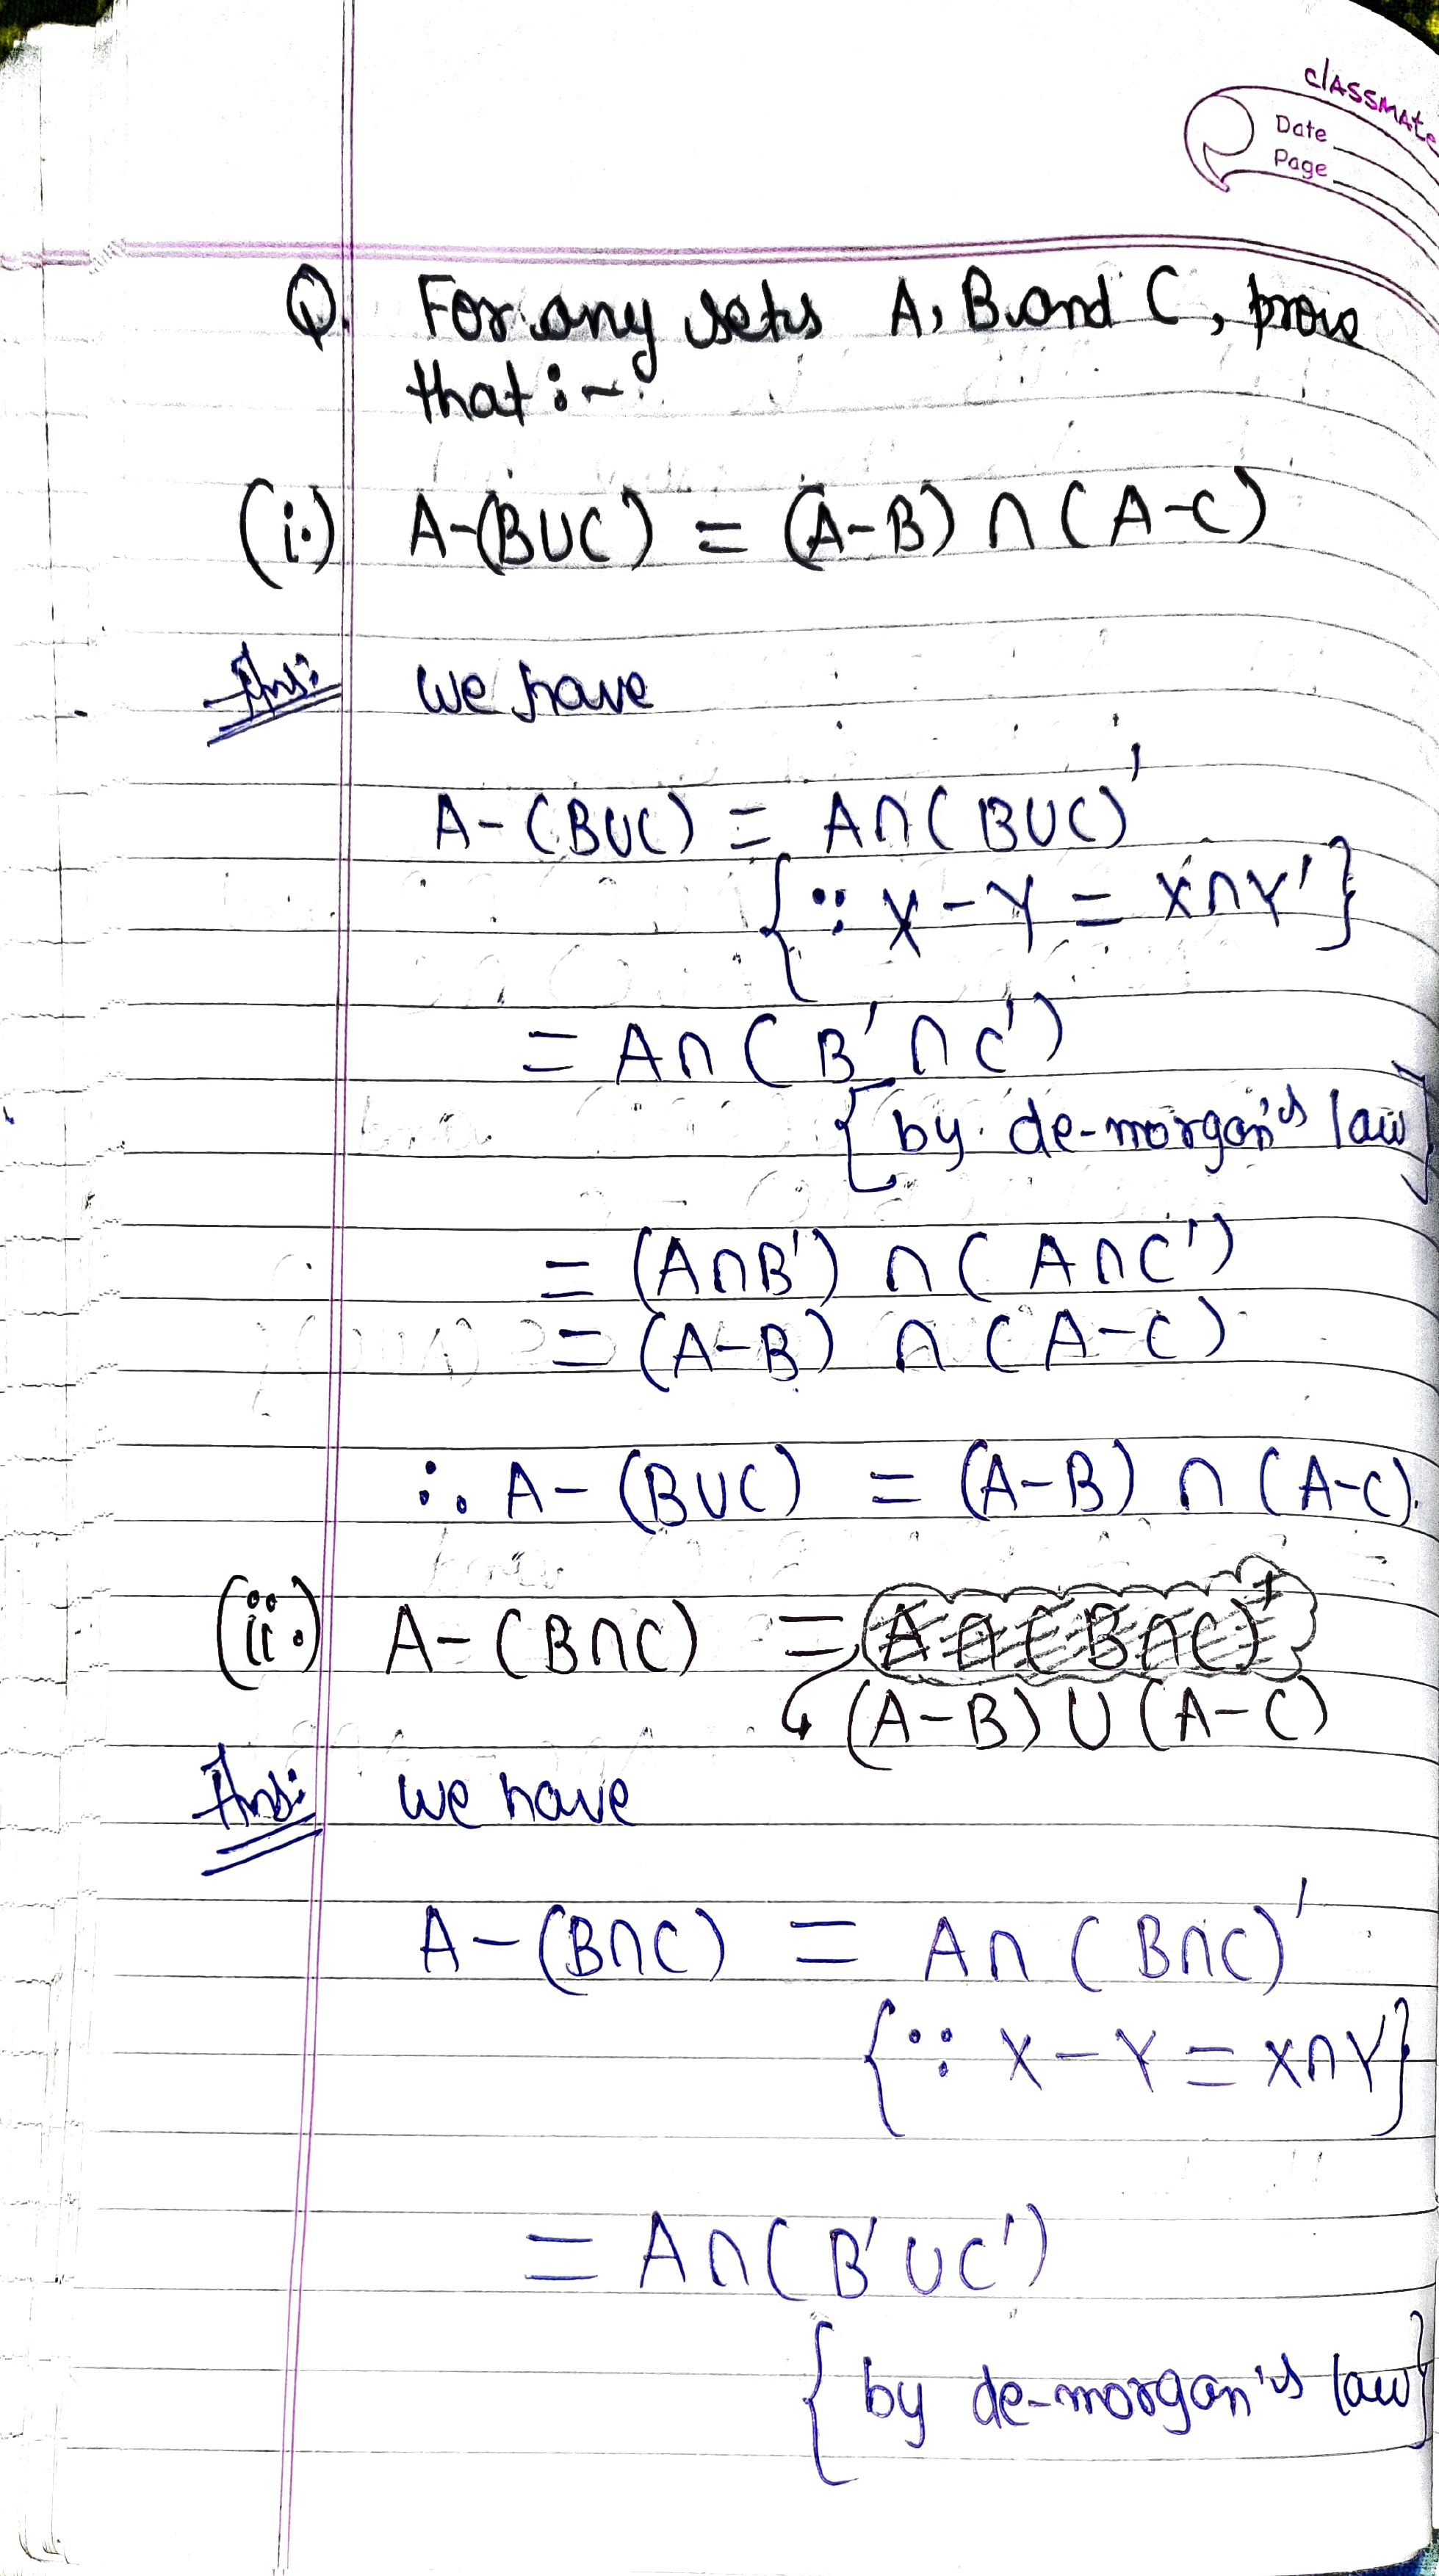 classmate
Date
Page
Q. For any sets A, B and C, prove
that :-
(i.) A-(B∪C) = (A-B) ∩ (A-C)
Ans: We have
A-(B∪C) = A∩(B∪C)'
{∵ X-Y = X∩Y'}
= A∩(B'∩C')
{by de-morgan's law}
= (A∩B') ∩ (A∩C')
= (A-B) ∩ (A-C)
∴ A-(B∪C) = (A-B) ∩ (A-C).
(ii.) A-(B∩C) = A∩(B∩C)'
(A-B) ∪ (A-C)
Ans: We have
A-(B∩C) = A∩(B∩C)'
{∵ X-Y = X∩Y}
= A∩(B'∪C')
{by de-morgan's law}